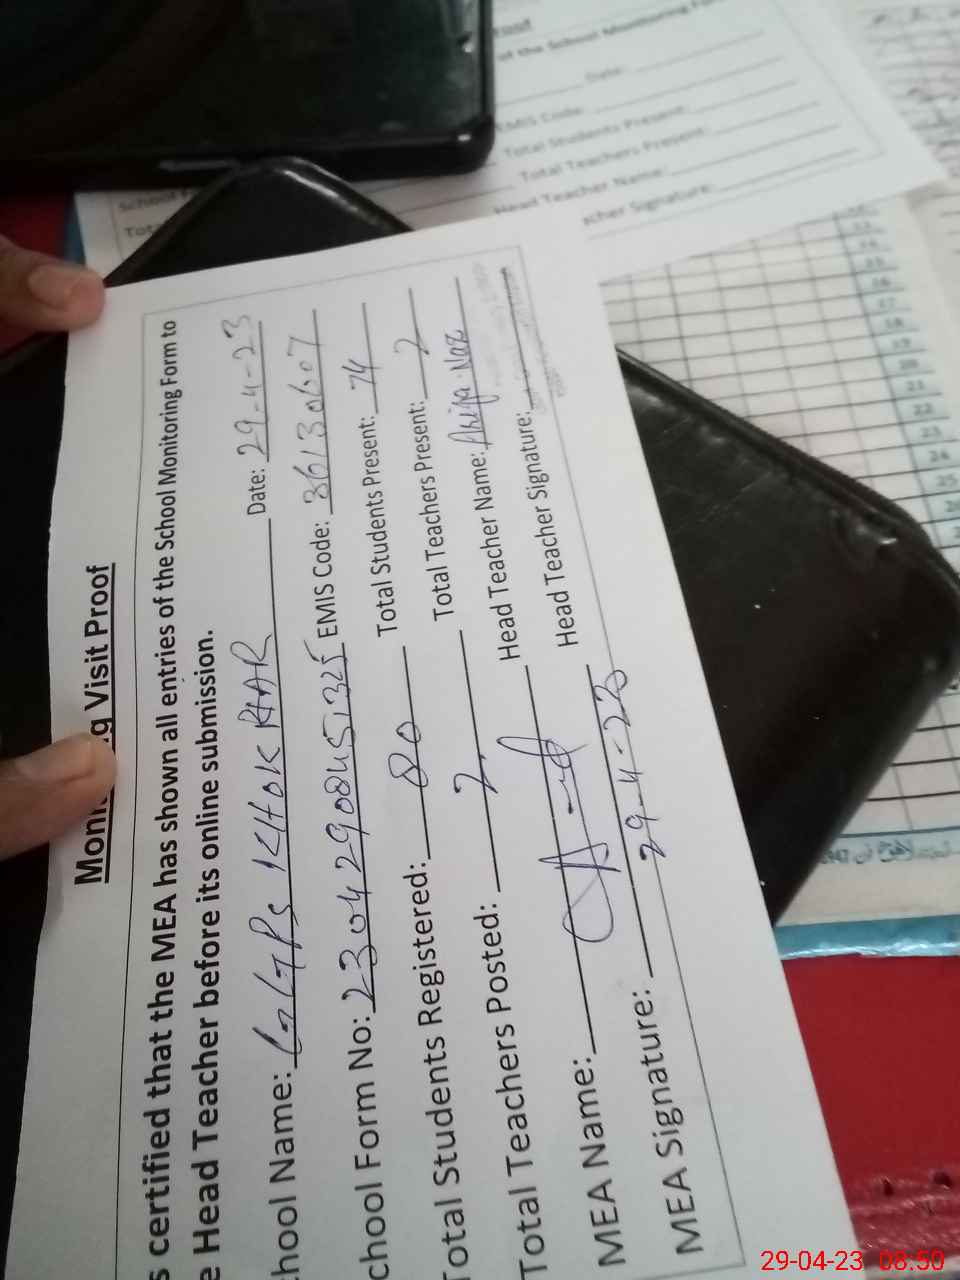 Visit Proof
s certified that the MEA has shown all entries of the School Monitoring Form to
e Head Teacher before its online submission.
chool Name: GGPS KHOKHAR Date: 29-4-23
chool Form No: 23042908451325 EMIS Code: 36130607
Total Students Registered: 80 Total Students Present: 74
Total Teachers Posted: 2 Total Teachers Present: 2
MEA Name: Head Teacher Name: Naz
MEA Signature: 29-4-23 Head Teacher Signature:
of the School Monitoring
Date:
EMIS Code:
Total Students Present:
Total Teachers Present:
Head Teacher Name:
cher Signature:
School
Tot
17
18
19
20
21
22
23
24
25
29-04-23 08:50